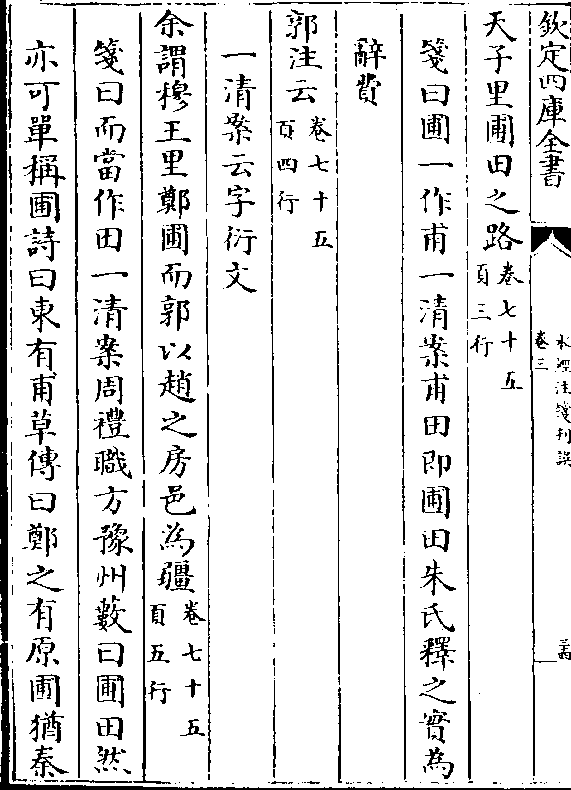 欽定四庫全書
水經注箋刊誤
卷三
天子里圃田之路卷七十五
頁三行
箋曰圃一作甫一清案甫田即圃田朱氏釋之實為
辭費
郭注云卷七十五
頁四行
一清案云字衍文
余謂穆王里鄭圃而郭以趙之房邑為疆卷七十五
頁五行
箋曰而當作田一清案周禮職方豫州藪曰圃田然
亦可單稱圃詩曰東有甫草傳曰鄭之有原圃猶秦